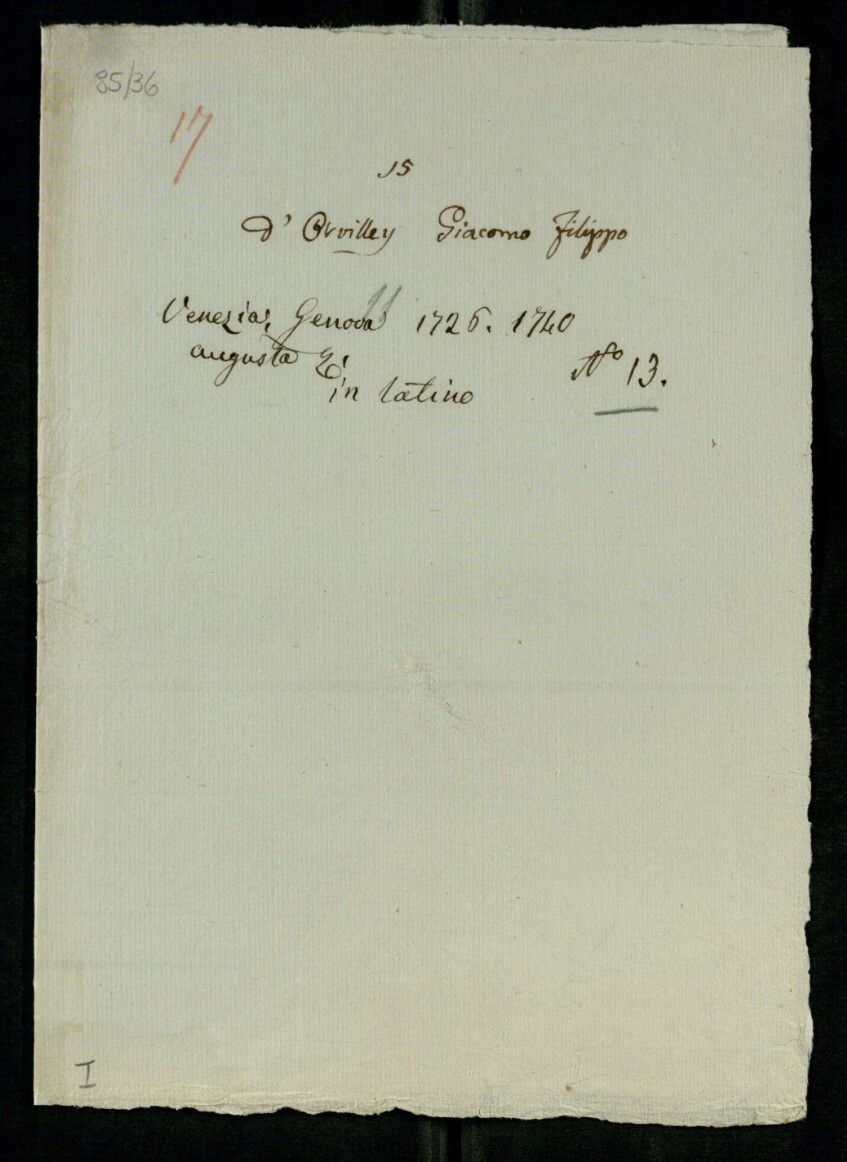 85/36
17
15
d' Orvilley Giacomo Filippo
Venezia, Genova 1726. 1740
augusta
in latino
N.o 13.
I